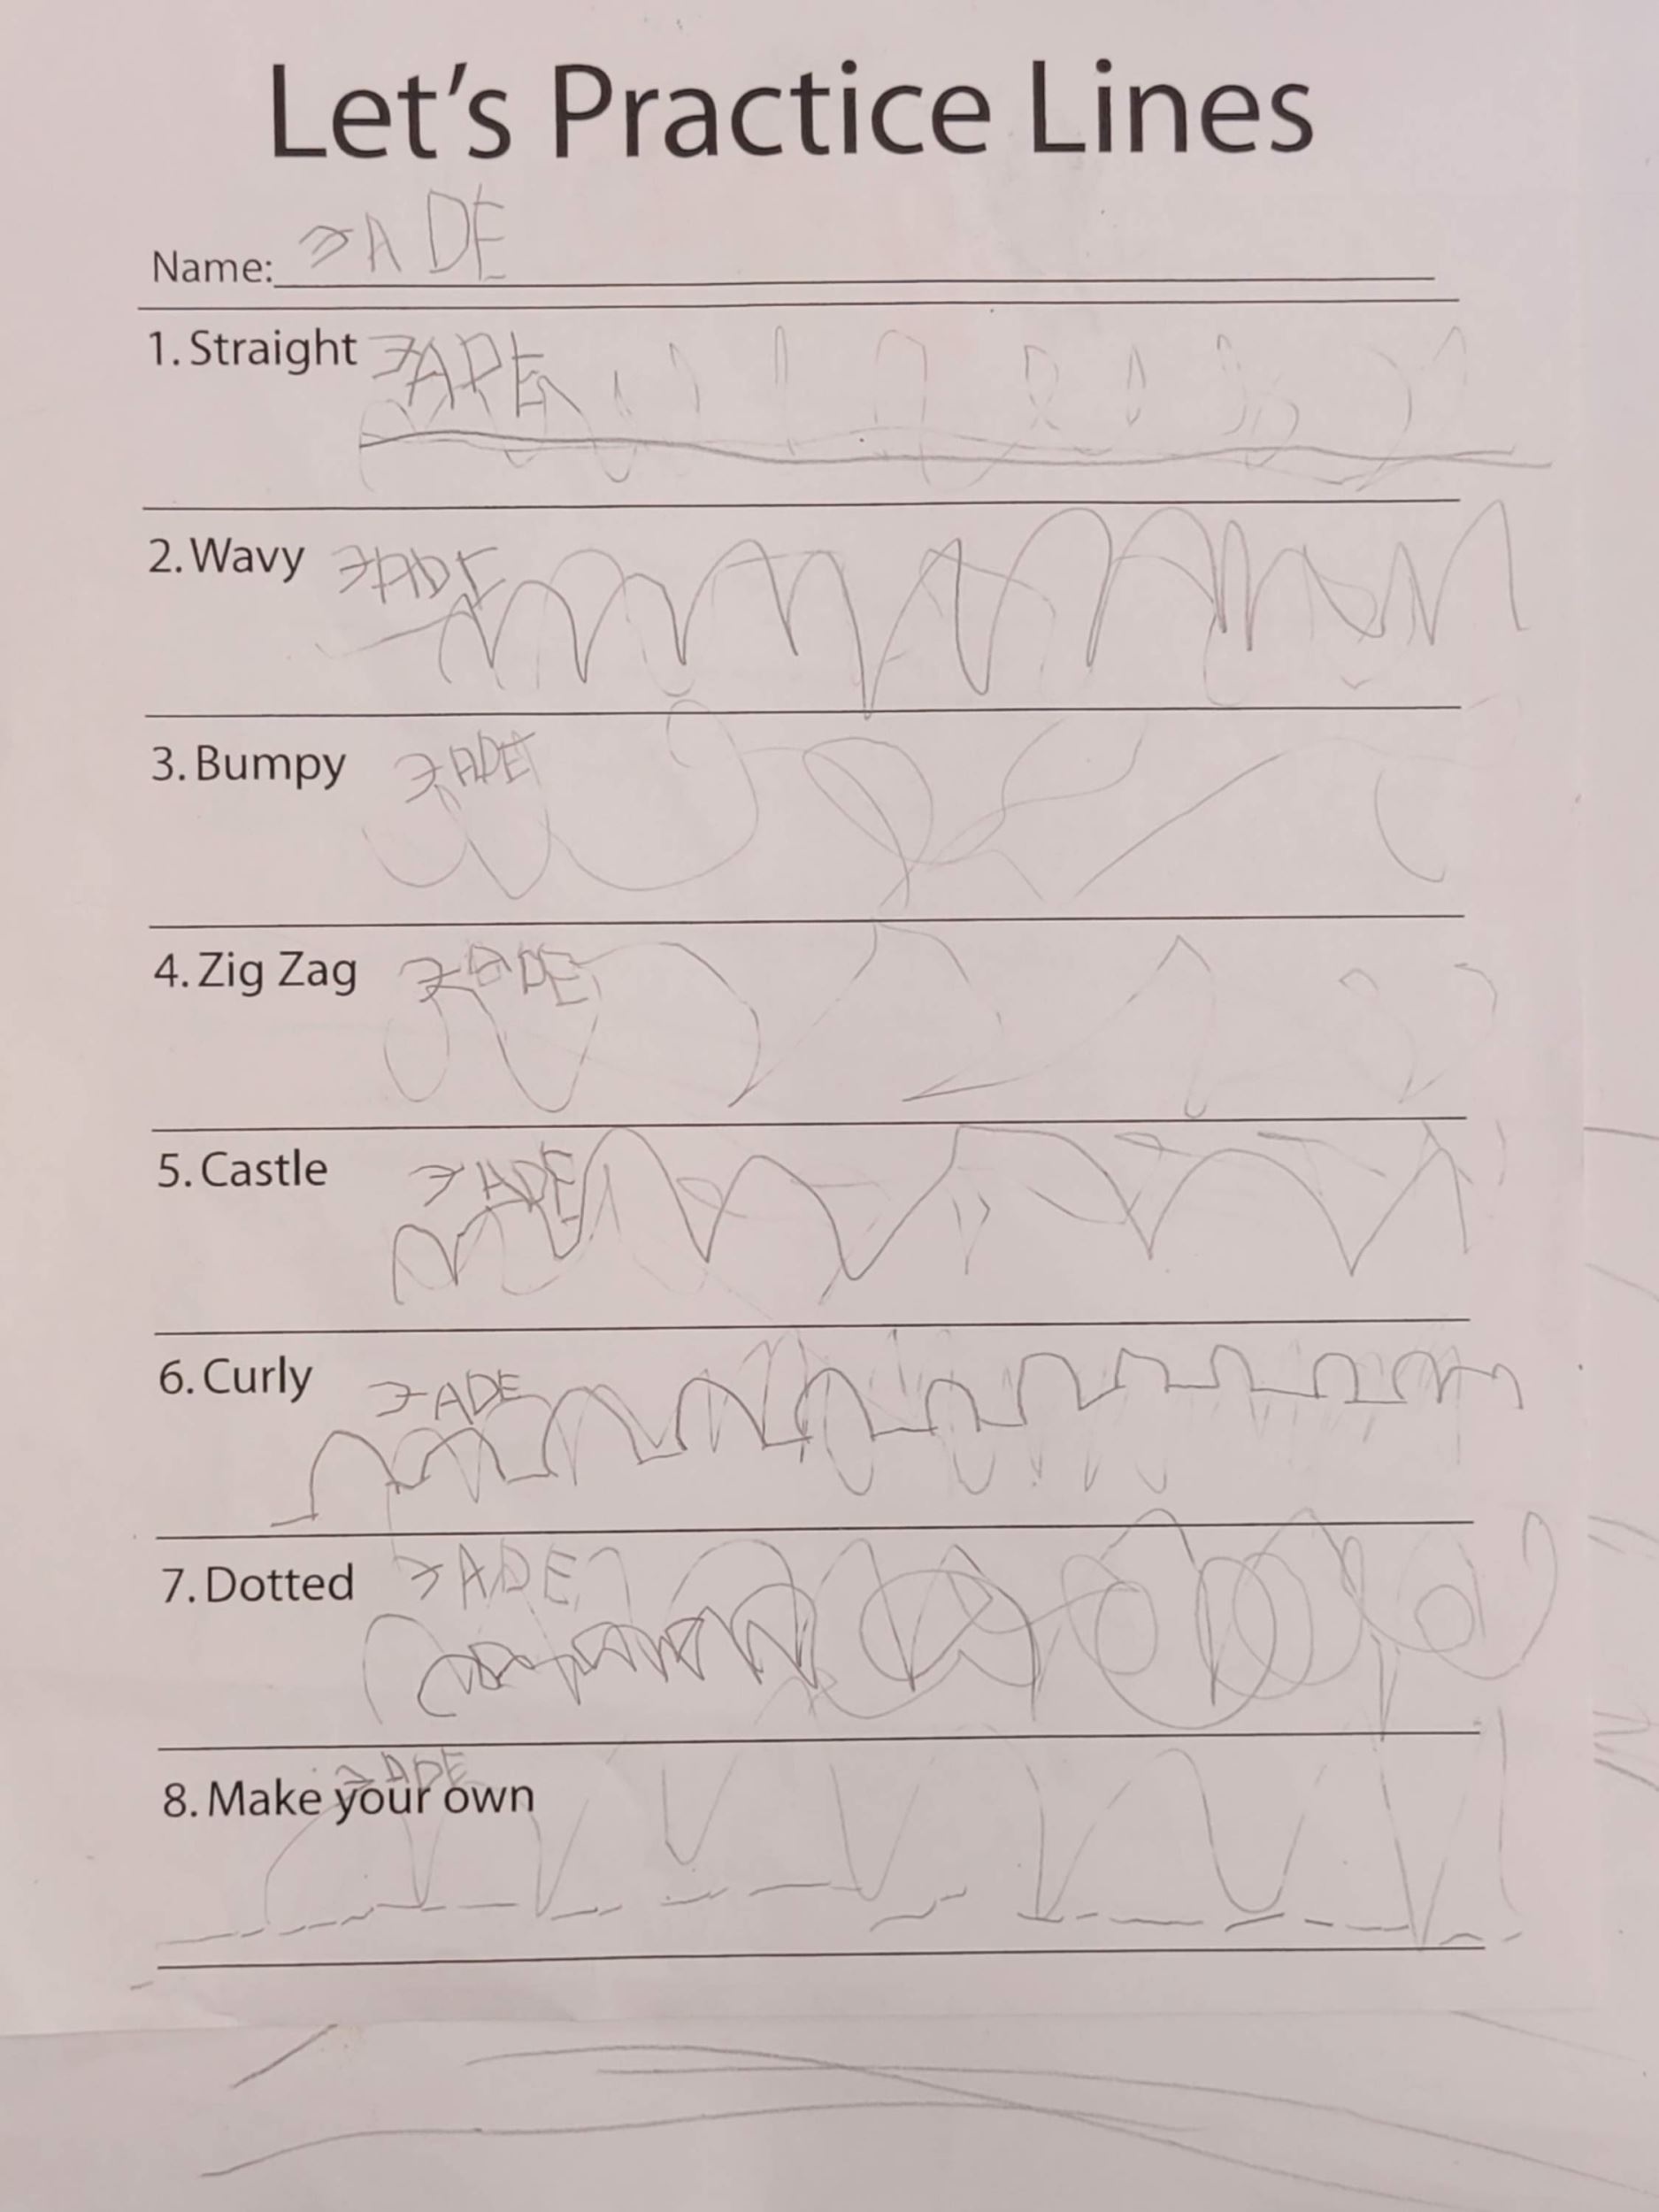 Let's Practice Lines
Name: JADE
1. Straight JADE
2. Wavy JADE
3. Bumpy JADE
4. Zig Zag JADE
5. Castle JADE
6. Curly JADE
7. Dotted JADE
JADE
8. Make your own